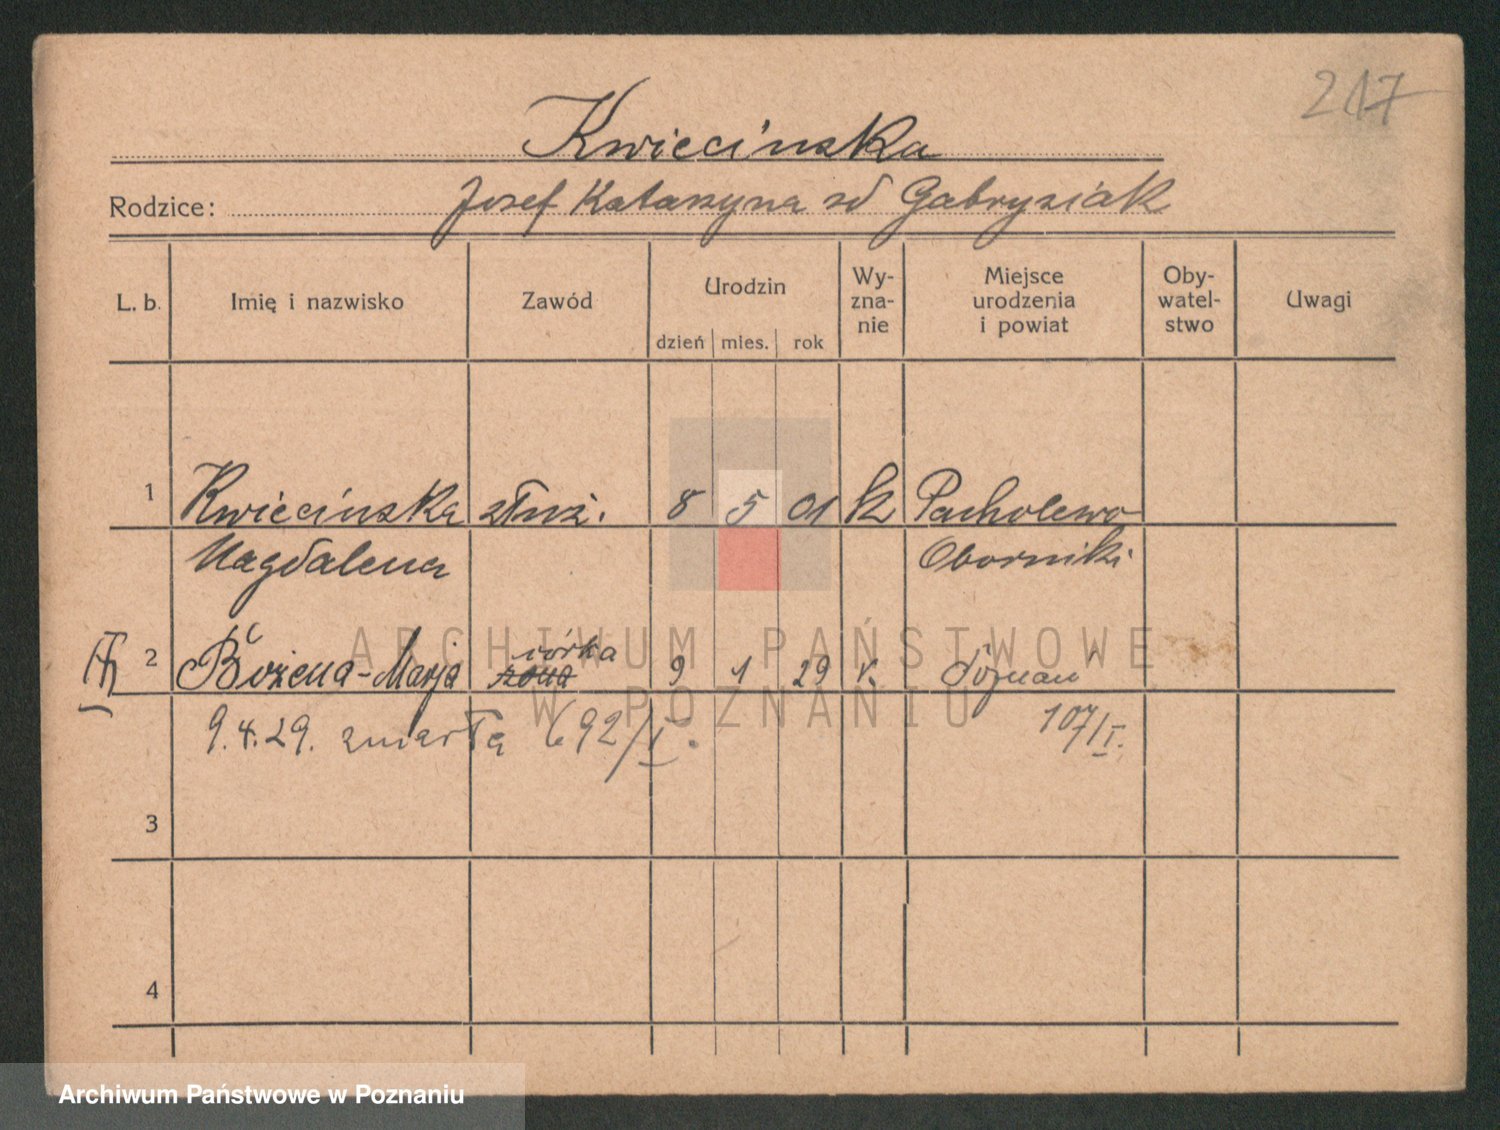 217
Kwiecińska
Rodzice: Josef Katarzyna zd Gabrysiak
L. b. Imię i nazwisko Zawód Urodzin dzień mies. rok Wy-zna-nie Miejsce urodzenia i powiat Oby-watel-stwo Uwagi
1 Kwiecińska służ. 8 5 01 k Pacholewo
Magdalena Oborniki
córka
2 Bożena-Marja żona 9 1 29 k. Poznań
9.4.29. zmarła 692/I. 107/I.
3
4
ARCHIWUM PAŃSTWOWE
W POZNANIU
Archiwum Państwowe w Poznaniu